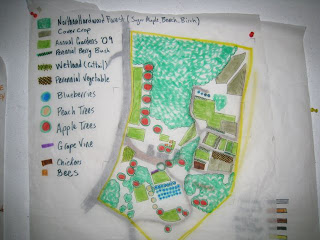 Northern Hardwood Forest (Sugar Maple, Beech, Birch)
Cover Crop
Annual Gardens '09
Perennial Berry Bush
Wetland (Cattail)
Perennial Vegetable
Blueberries
Peach Trees
Apple Trees
Grape Vine
Chickens
Bees